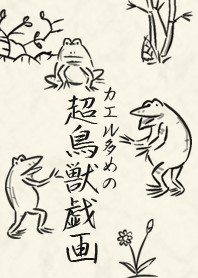 カエル多めの
超鳥獣戯画